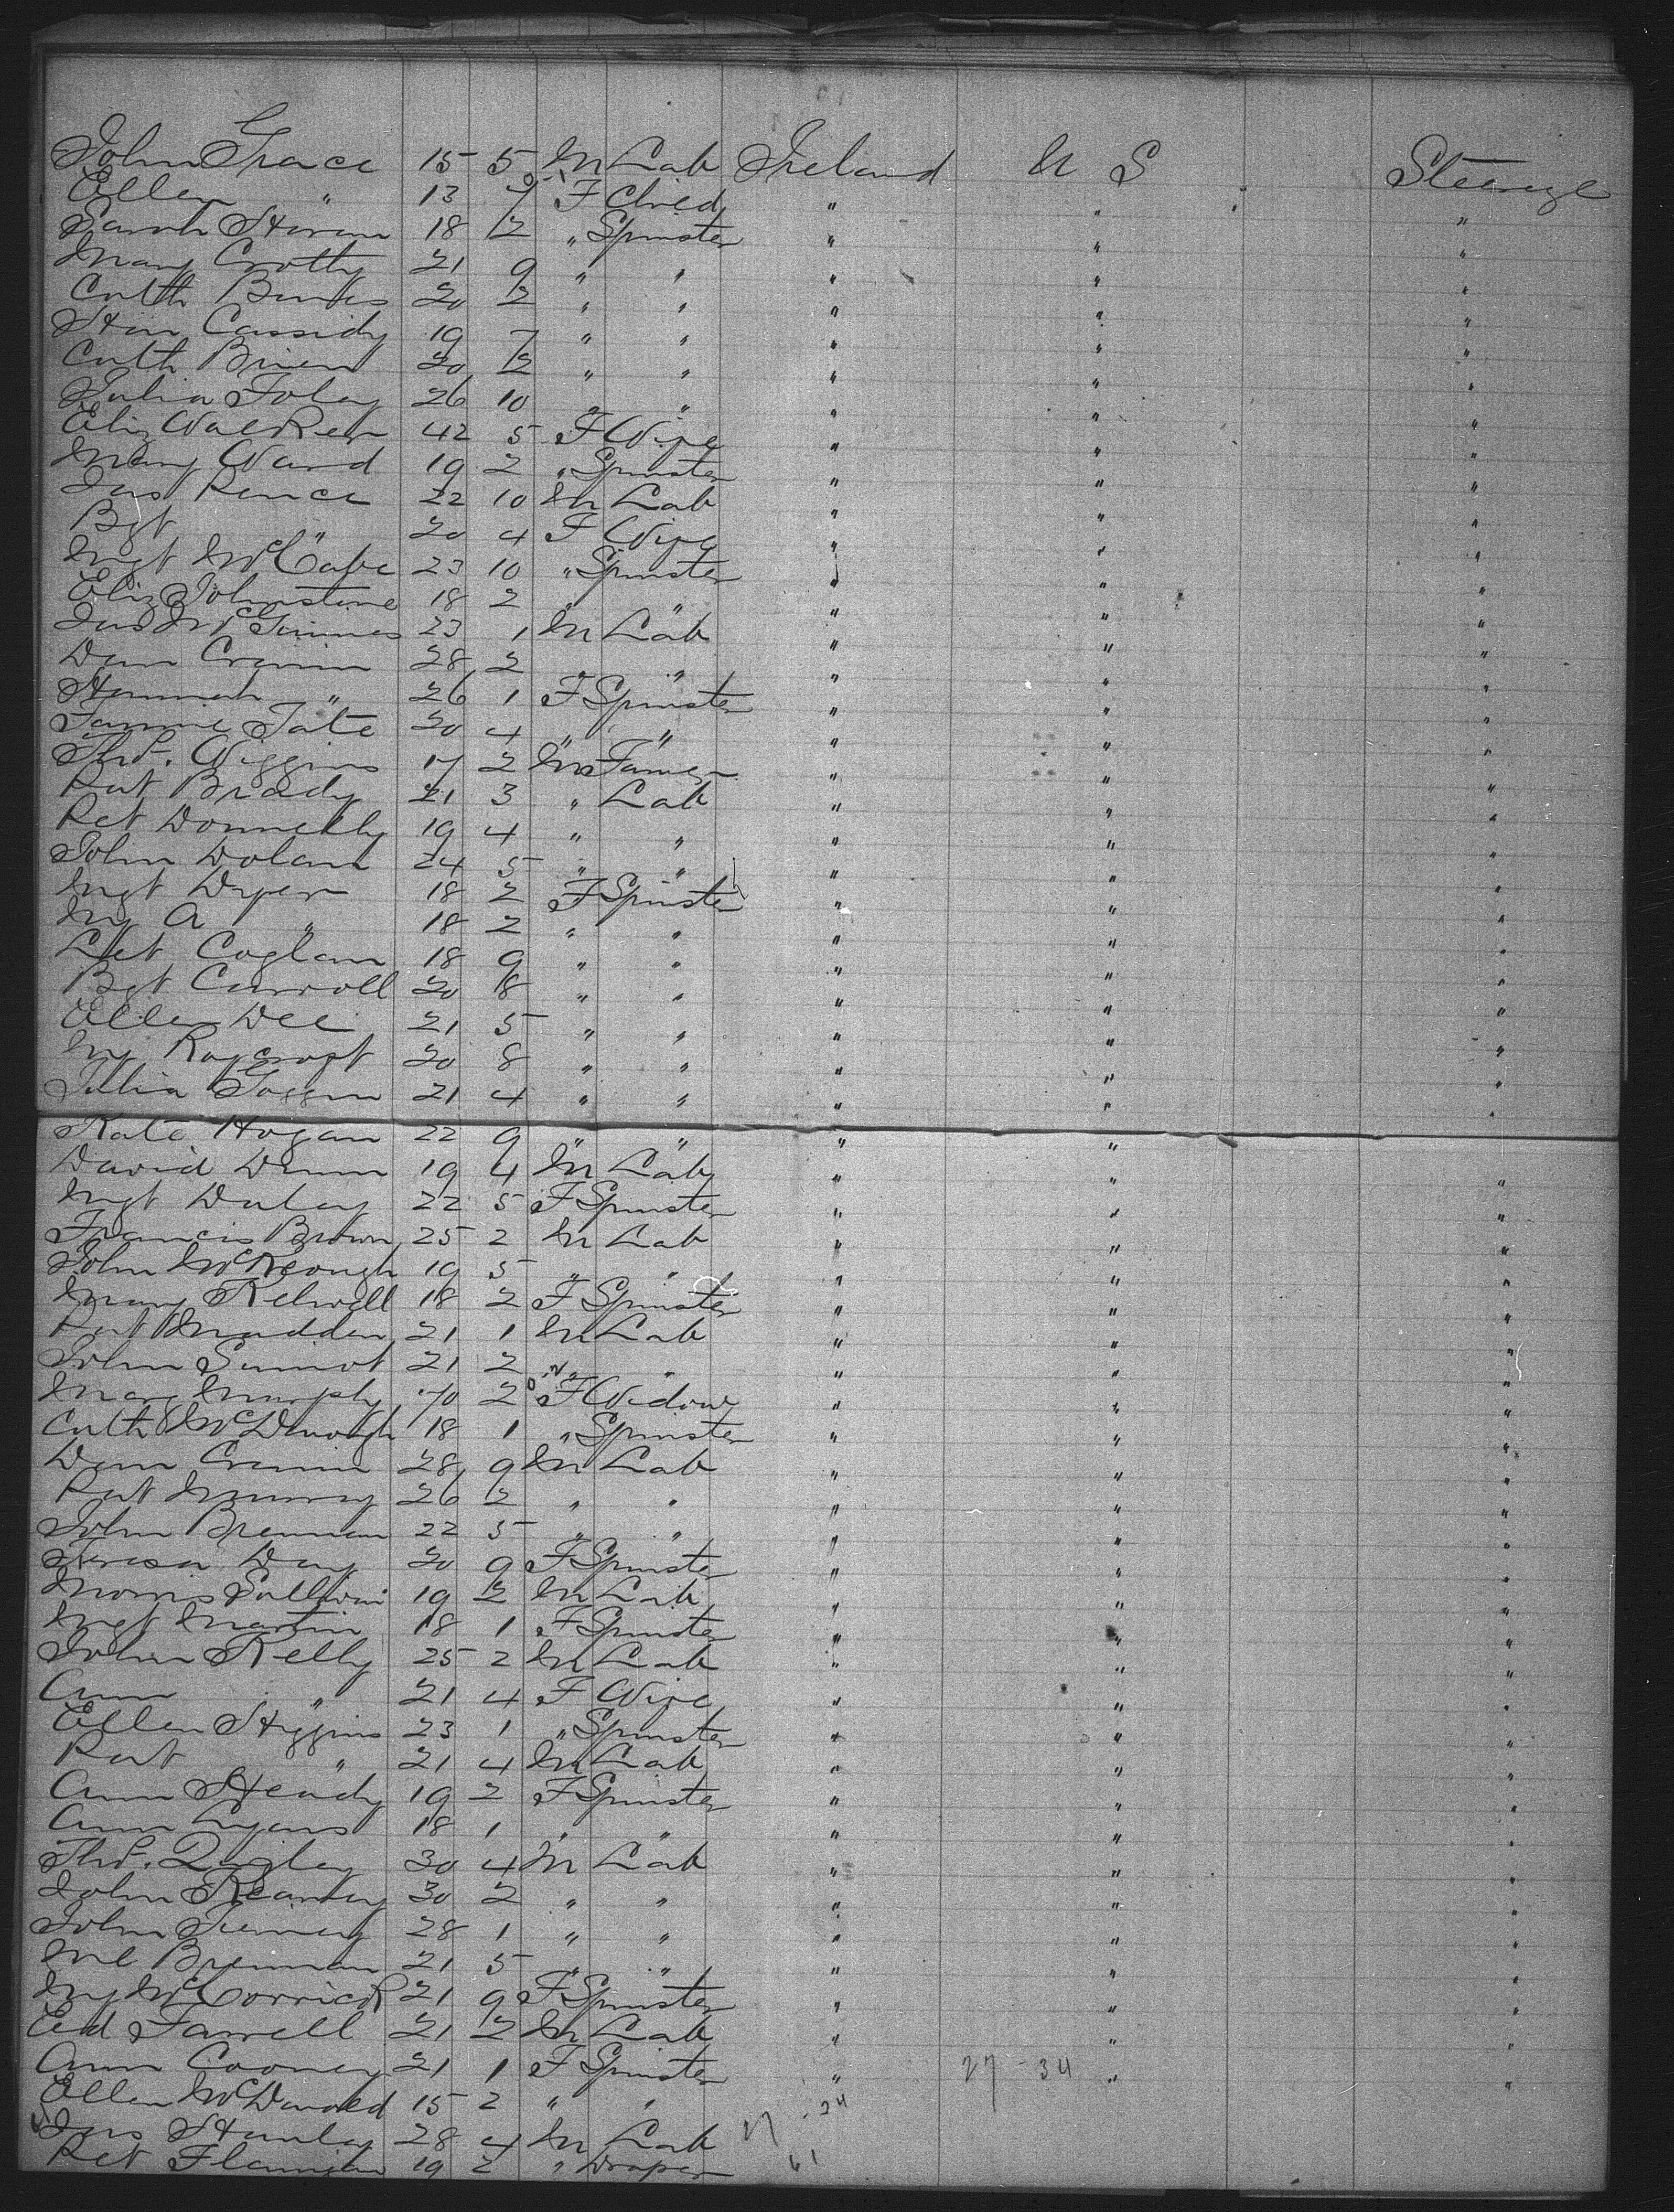 John Grace 15 5 M Lab Ireland U S Steerage
Ellen " 13 7 F Child " " "
Sarah Horan 18 2 " Spinster " " "
Mary Crotty 21 9 " " " " "
Cath 20 2 " " " " "
Cassidy 19 7 " " " " "
Cath Brien 20 2 " " " " "
Julia Foley 26 10 " " " " "
Eliz Walker 42 5 F Wife " " "
Mary Ward 19 2 " Spinster " " "
Jas 22 10 M Lab " " "
Bgt " 20 4 F Wife " " "
Mgt McCabe 23 10 " Spinster " " "
Eliz Johnstone 18 2 " " " " "
Jas 23 1 M Lab " " "
Dan Cronin 28 2 " " " " "
Hannah " 26 1 F Spinster " " "
Fannie Tate 20 4 " " " " "
Thos. Wiggins 17 2 M Farmer " " "
Pat Brady 21 3 " Lab " " "
Pet Donnelly 19 4 " " " " "
John Dolan 24 5 " " " " "
Mgt Dwyer 18 2 F Spinster " " "
My A " 18 2 " " " " "
Coglan 18 9 " " " " "
Bgt Carroll 20 8 " " " " "
Ellen Dee 21 5 " " " " "
My Roycroft 20 8 " " " " "
Julia Goggin 21 4 " " " " "
Kate Hogan 22 9 " " " " "
David Dunn 19 4 M Lab " " "
Mgt Daley 22 5 F Spinster " " "
Francis Brown 25 2 M Lab " " "
John McKeough 19 5 " " " " "
Mary Kelwell 18 2 F Spinster " " "
Pat Madden 21 1 M Lab " " "
John Sinnot 21 2 " " " " "
Mary Murphy 70 2 F Widow " " "
Cath McDonogh 18 1 " Spinster " " "
Dan Cronin 28 9 M Lab " " "
Pat Murray 26 2 " " " " "
John Brennan 22 5 " " " " "
Teresa Day 20 9 F Spinster " " "
Morris Sullivan 19 2 M Lab " " "
Mgt Martin 18 1 F Spinster " " "
John Kelly 25 2 M Lab " " "
Ann " 21 4 F Wife " " "
Ellen Higgins 23 1 " Spinster " " "
Pat " 21 4 M Lab " " "
Ann Heady 19 2 F Spinster " " "
Ann Lyons 18 1 " " " " "
Thos. Quigley 30 4 M Lab " " "
John Kearney 30 2 " " " " "
John Tierney 28 1 " " " " "
Ml Brennan 21 5 " " " " "
My McCorrick 21 9 F Spinster " " "
Ed Farrell 21 2 M Lab " " "
Ann Cooney 21 1 F Spinster " 27-34 " "
Ellen McDonald 15 2 " "
Jas Hanley 28 4 M Lab
Pet Flanigan 19 2 " Draper 61